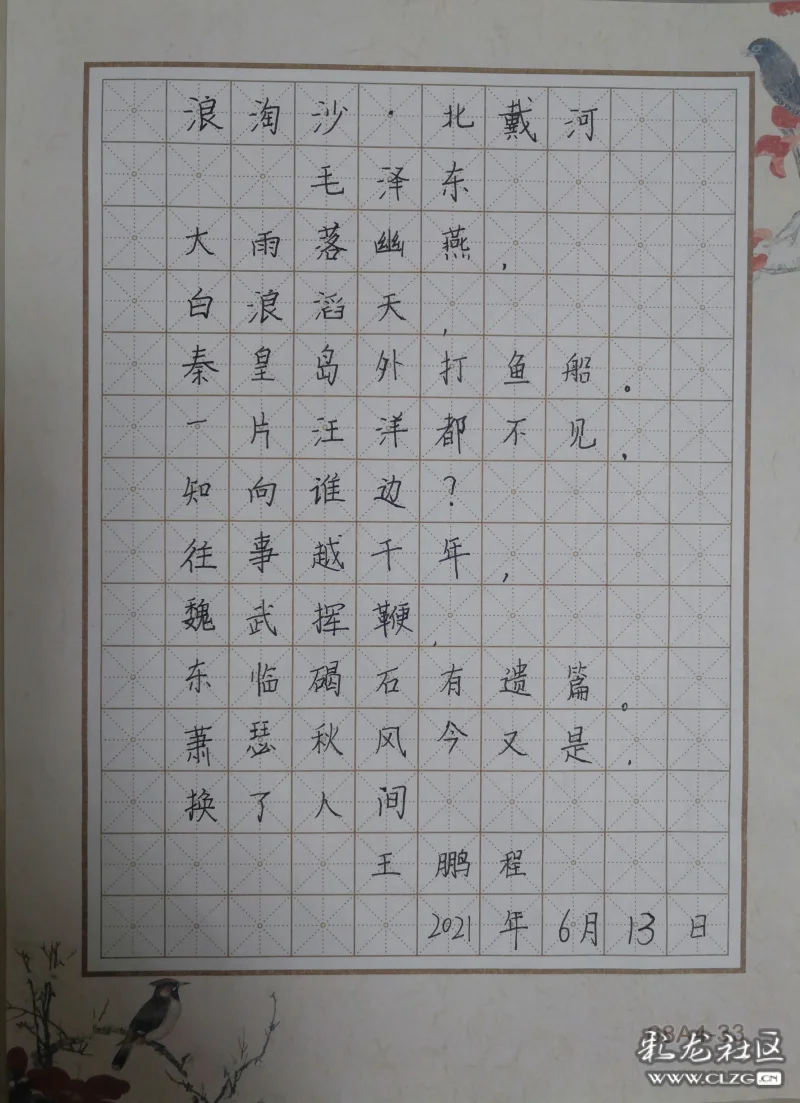 浪淘沙·北戴河
毛泽东
大雨落幽燕，
白浪滔天，
秦皇岛外打鱼船。
一片汪洋都不见，
知向谁边？
往事越千年，
魏武挥鞭，
东临碣石有遗篇。
萧瑟秋风今又是，
换了人间
王鹏程
2021年6月13日
彩龙社区
www.CLZG.CN